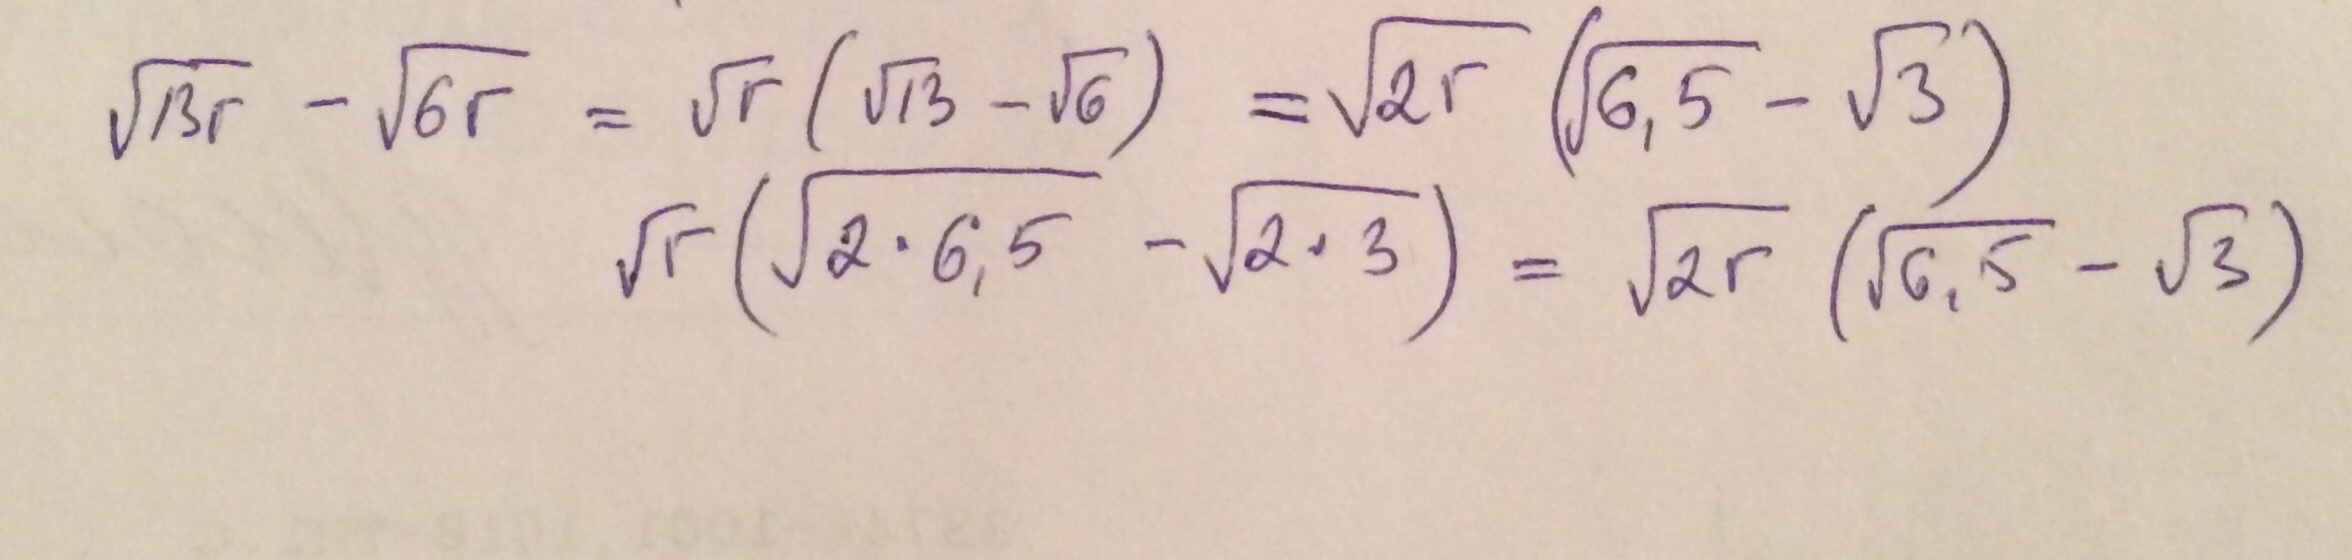 √13r - √6r = √r (√13 - √6) = √2r (√6,5 - √3)
√r (√2·6,5 - √2·3) = √2r (√6,5 - √3)